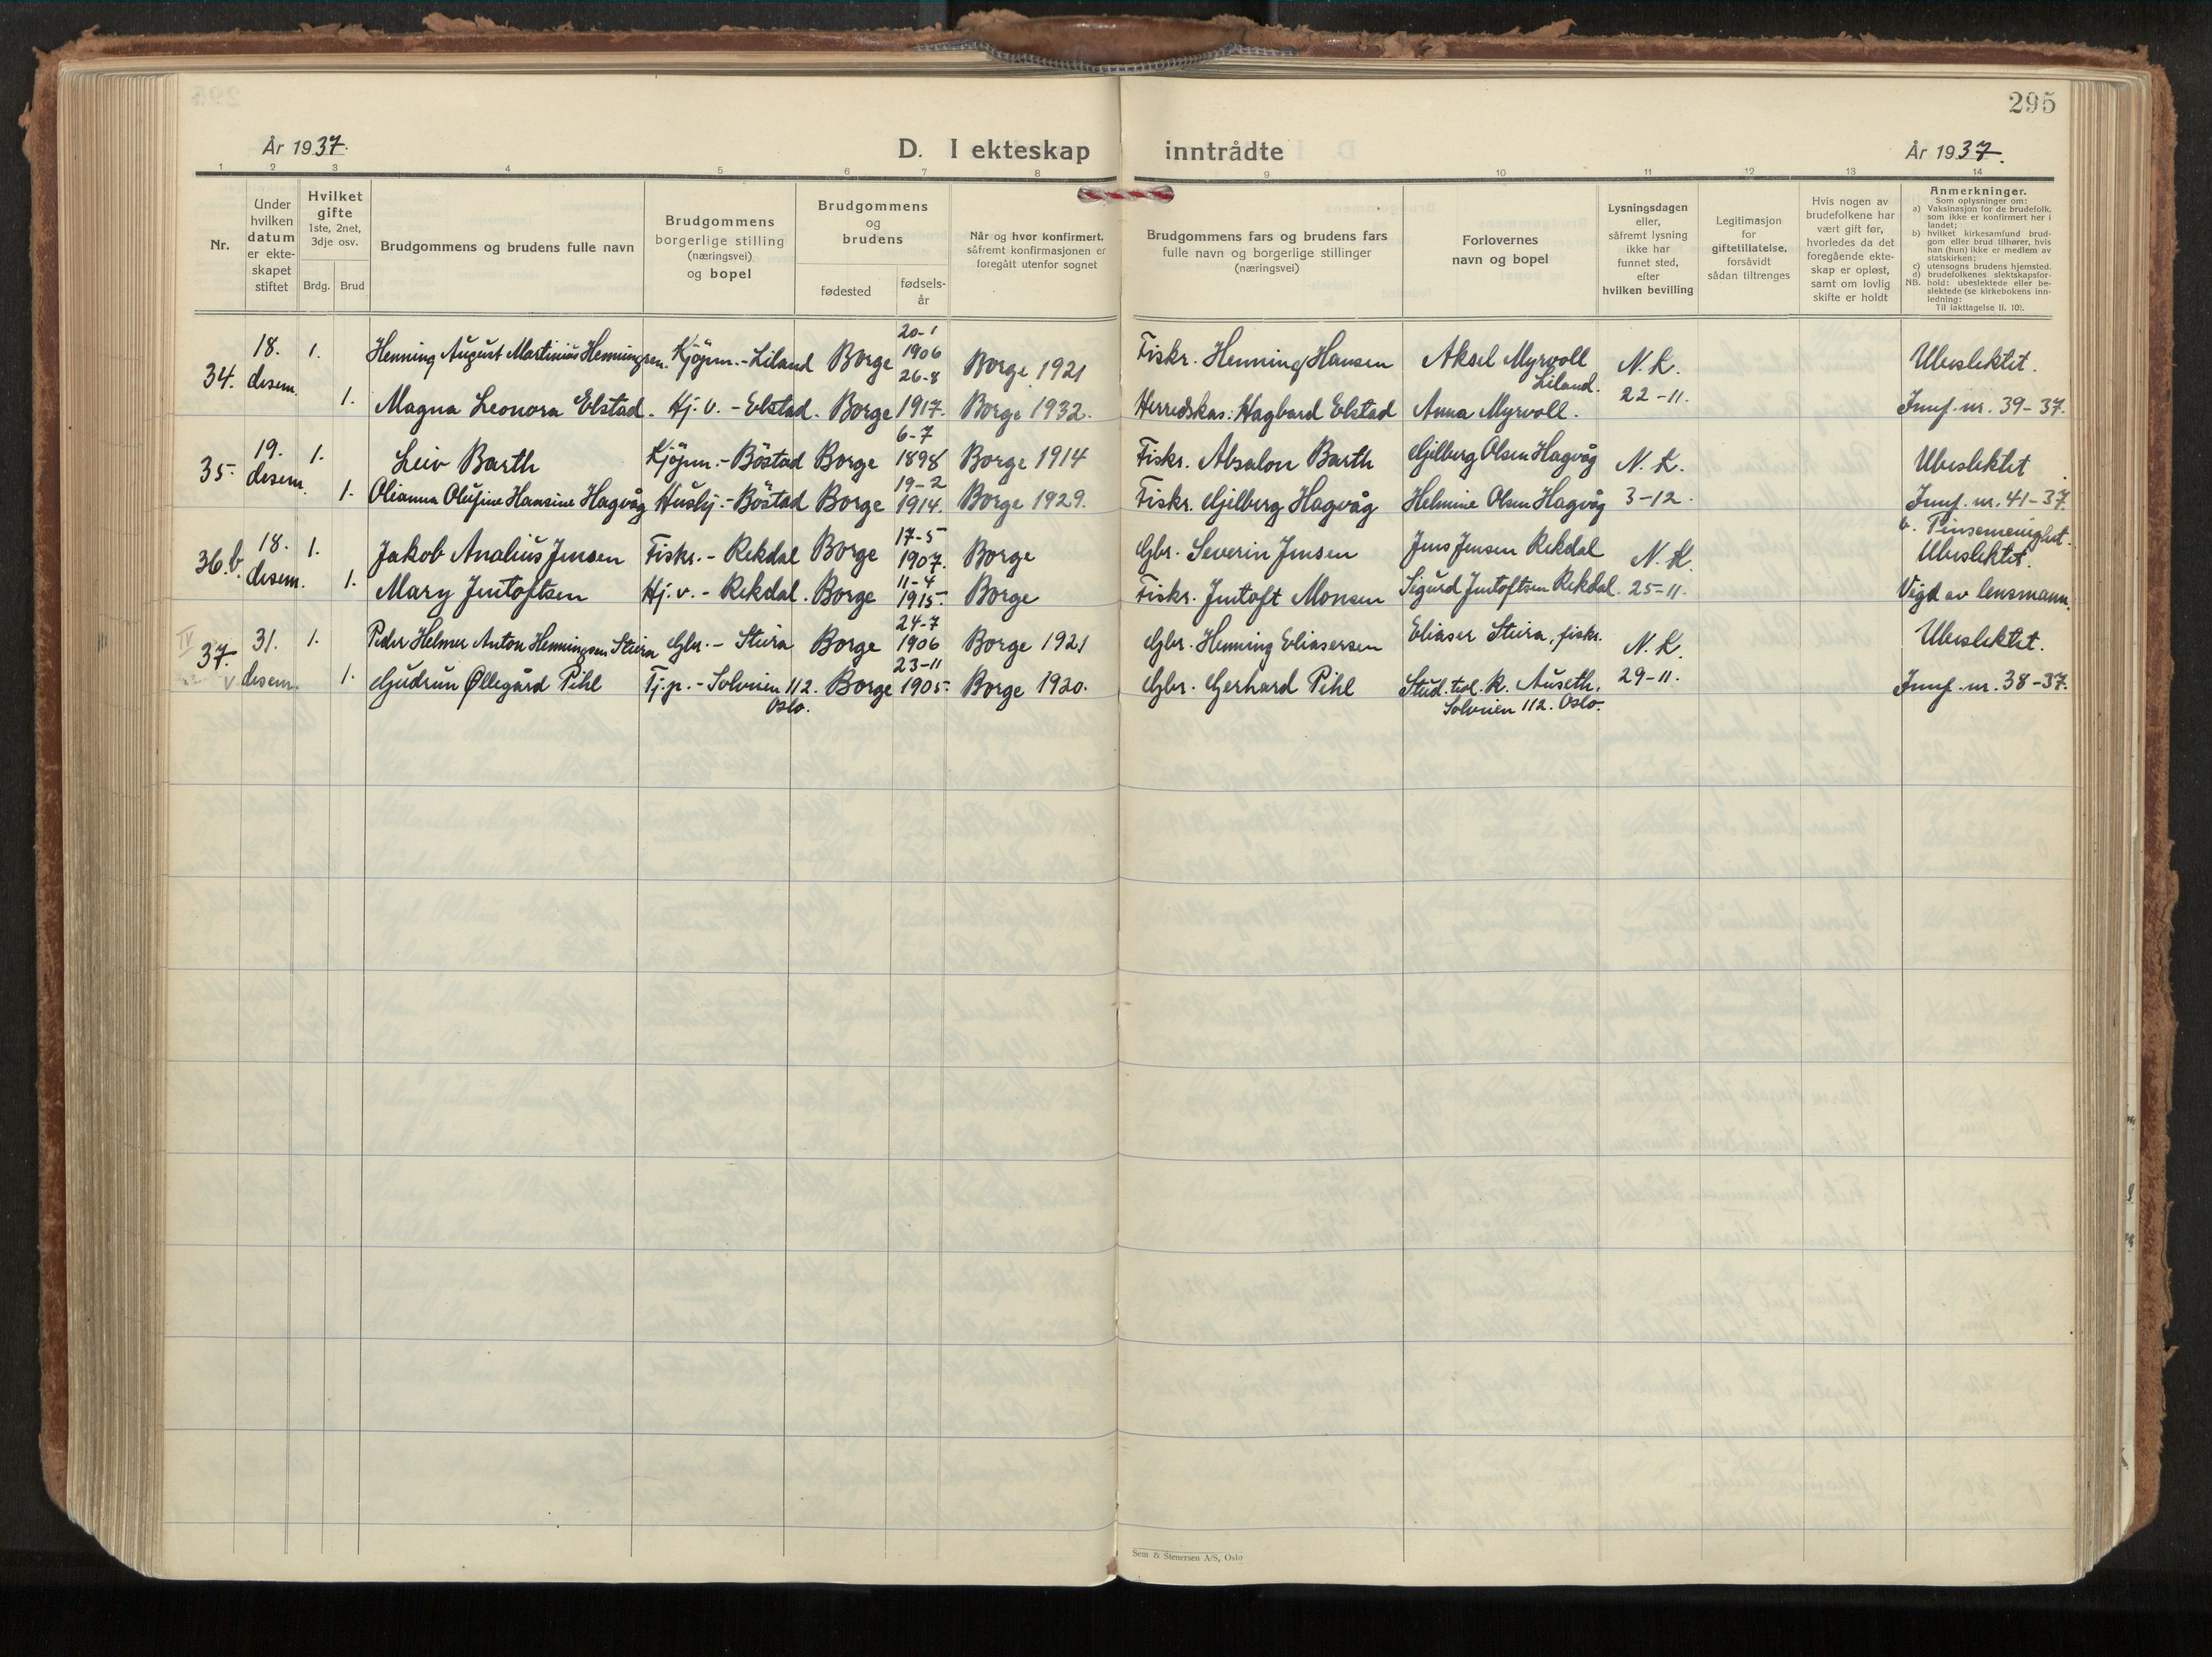 295
År 1937.
D. I ekteskap inntrådte
År 1937.
1 2 3 4 5 6 7 8 9 10 11 12 13 14
Nr.
Under
hvilken
datum
er ekte-
skapet
stiftet
Hvilket
gifte
1ste, 2net,
3dje osv.
Brdg. Brud
Brudgommens og brudens fulle navn
Brudgommens
borgerlige stilling
(næringsvei)
og bopel
Brudgommens
og
brudens
fødested
fødsels-
år
Når og hvor konfirmert,
såfremt konfirmasjonen er
foregått utenfor sognet
Brudgommens fars og brudens fars
fulle navn og borgerlige stillinger
(næringsvei)
Forlovernes
navn og bopel
Lysningsdagen
eller,
såfremt lysning
ikke har
funnet sted,
efter
hvilken bevilling
Legitimasjon
for
giftetillatelse,
forsåvidt
sådan tiltrenges
Hvis nogen av
brudefolkene har
vært gift før,
hvorledes da det
foregående ekte-
skap er opløst,
samt om lovlig
skifte er holdt
Anmerkninger.
Som oplysninger om:
a) Vaksinasjon for de brudefolk,
som ikke er konfirmert her i
landet;
b) hvilket kirkesamfund brud-
gom eller brud tilhører, hvis
han (hun) ikke er medlem av
statskirken;
c) utensogns brudens hjemsted.
d) brudefolkenes slektskapsfor-
NB. hold: ubeslektede eller be-
slektede (se kirkebokens inn-
ledning:
Til iakttagelse II. 10).
34. 18. desem. 1. Henning August Martinius Henningsen. Kjøpm. - Liland Borge 20-1 1906 Borge 1921 Fiskr. Henning Hansen Aksel Myrvoll Liland. N. K. 22-11. Ubeslektet.
1. Magna Leonora Elstad. Hj. v. - Elstad. Borge 26-8 1917. Borge 1932. Herredskas: Hagbard Elstad Anna Myrvoll. Innf. nr. 39-37.
35. 19. desem. 1. Leiv Barth Kjøpm. - Böstad Borge 6-7 1898 Borge 1914 Fiskr. Absalon Barth Gjelberg Olsen Hagvåg N. K. 3-12. Ubeslektet
1. Olianna Olufine Hansine Hagvåg Hushj. - Böstad Borge 19-2 1914. Borge 1929. Fiskr. Gjelberg Hagvåg Helmine Olsen Hagvåg Innf. nr. 41-37.
36.b. 18. desem. 1. Jakob Analius Jensen Fiskr. - Rekdal Borge 17-5 1907. Borge Gbr. Severin Jensen Jens Jensen Rekdal N. K. 25-11. b. Pinsemenighet.
Ubeslektet.
1. Mary Jentoftsen Hj. v. - Rekdal. Borge 11-4 1915. Borge Fiskr. Jentoft Monsen Sigurd Jentoftsen Rekdal. Vigd av lensmann.
IV
37. 31. desem. 1. Peder Helmer Anton Henningsen Steira Gbr. - Steira Borge 24-7 1906 Borge 1921 Gbr. Henning Eliasersen Eliaser Steira, fiskr. N. K. 29-11. Ubeslektet.
v 1. Gudrun Øllegård Pihl Tj. p. - Solveien 112. Oslo. Borge 23-11 1905. Borge 1920. Gbr. Gerhard Pihl Stud. teol. K. Auseth. Solveien 112. Oslo. Innf. nr. 38-37.
Sem & Stenersen A/S, Oslo